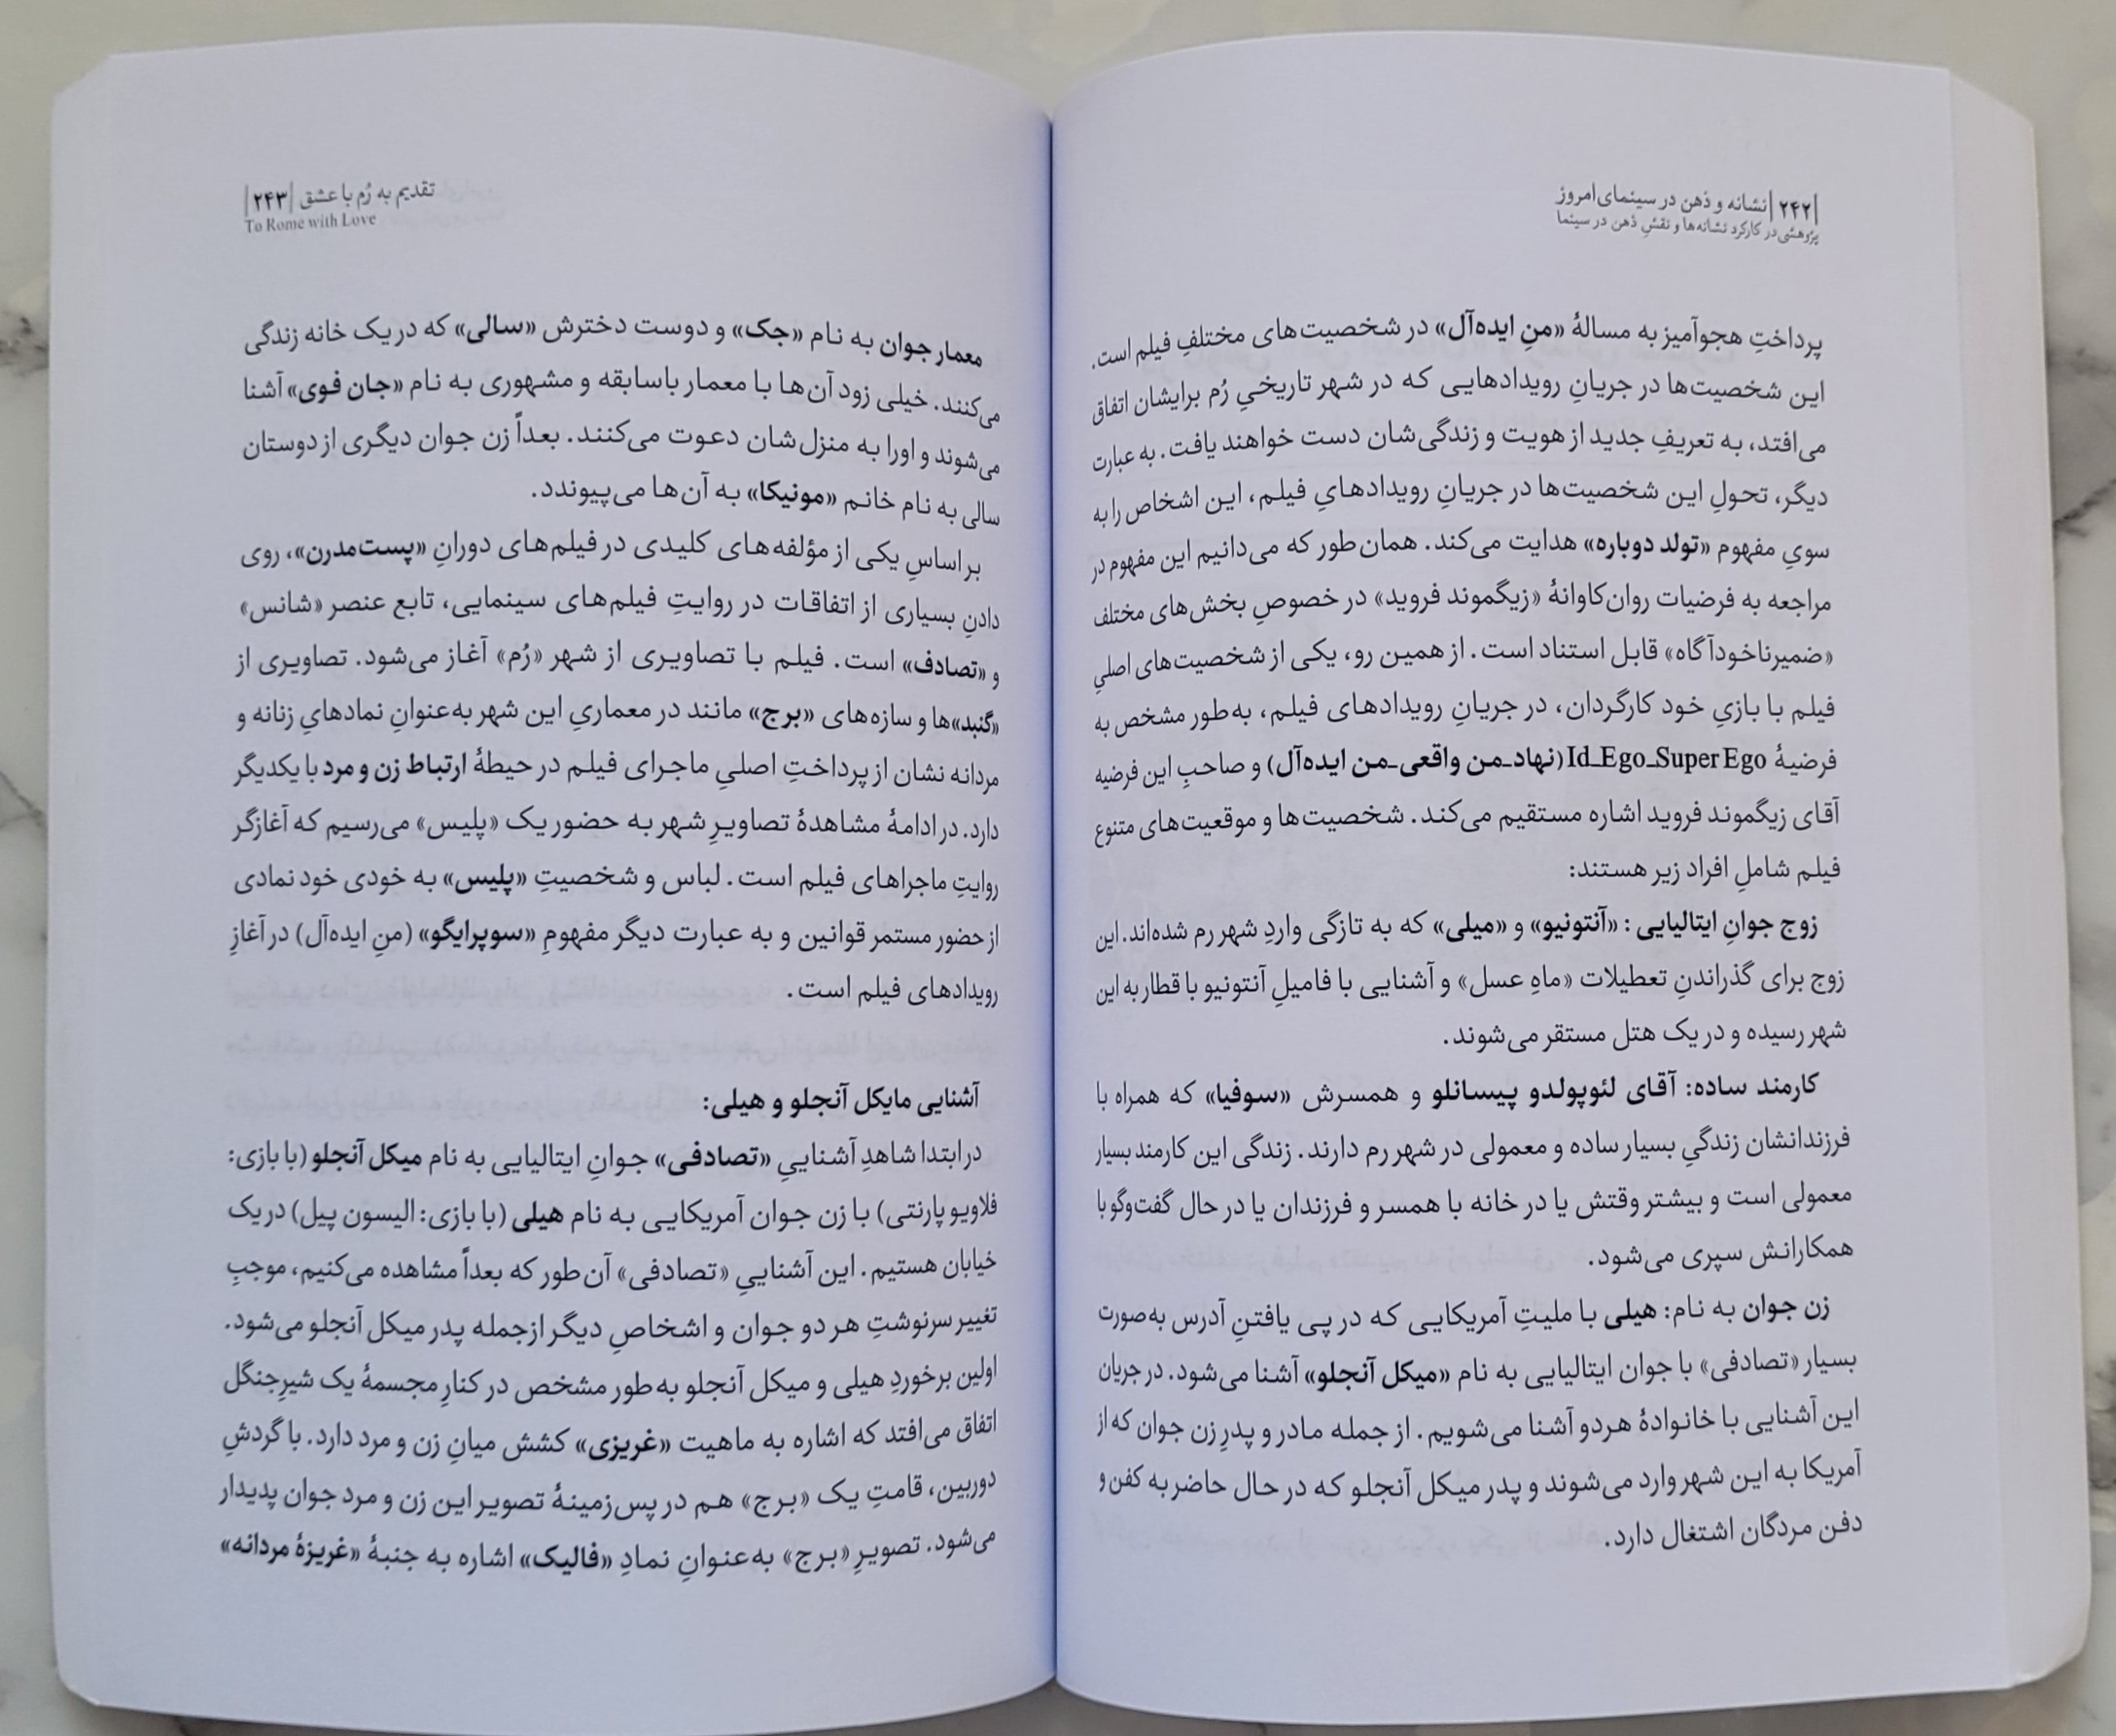 |۲۴۲| نشانه و ذهن در سینمای امروز
پژوهشی در کارکرد نشانه‌ها و نقشِ ذهن در سینما
پرداختِ هجوآمیز به مسالهٔ «منِ ایده‌آل» در شخصیت‌های مختلفِ فیلم است.
این شخصیت‌ها در جریانِ رویدادهایی که در شهر تاریخیِ رُم برایشان اتفاق
می‌افتد، به تعریفِ جدید از هویت و زندگی‌شان دست خواهند یافت. به عبارت
دیگر، تحولِ این شخصیت‌ها در جریانِ رویدادهایِ فیلم، این اشخاص را به
سویِ مفهوم «تولد دوباره» هدایت می‌کند. همان‌طور که می‌دانیم این مفهوم در
مراجعه به فرضیات روان‌کاوانهٔ «زیگموند فروید» در خصوصِ بخش‌های مختلف
«ضمیرناخودآگاه» قابل استناد است. از همین رو، یکی از شخصیت‌های اصلیِ
فیلم با بازیِ خود کارگردان، در جریانِ رویدادهای فیلم، به‌طور مشخص به
فرضیهٔ Id_Ego_Super Ego (نهاد_من واقعی_من ایده‌آل) و صاحبِ این فرضیه
آقای زیگموند فروید اشاره مستقیم می‌کند. شخصیت‌ها و موقعیت‌های متنوع
فیلم شاملِ افراد زیر هستند:
زوج جوانِ ایتالیایی: «آنتونیو» و «میلی» که به تازگی واردِ شهر رم شده‌اند. این
زوج برای گذراندنِ تعطیلات «ماهِ عسل» و آشنایی با فامیلِ آنتونیو با قطار به این
شهر رسیده و در یک هتل مستقر می‌شوند.
کارمند ساده: آقای لئوپولدو پیسانلو و همسرش «سوفیا» که همراه با
فرزندانشان زندگیِ بسیار ساده و معمولی در شهر رم دارند. زندگی این کارمند بسیار
معمولی است و بیشتر وقتش یا در خانه با همسر و فرزندان یا در حال گفت‌وگو با
همکارانش سپری می‌شود.
زن جوان به نام: هیلی با ملیتِ آمریکایی که در پی یافتنِ آدرس به‌صورت
بسیار «تصادفی» با جوان ایتالیایی به نام «میکل آنجلو» آشنا می‌شود. در جریان
این آشنایی با خانوادهٔ هردو آشنا می‌شویم. از جمله مادر و پدرِ زن جوان که از
آمریکا به این شهر وارد می‌شوند و پدر میکل آنجلو که در حال حاضر به کفن و
دفن مردگان اشتغال دارد.
تقدیم به رُم با عشق |۲۴۳|
To Rome with Love
معمار جوان به نام «جک» و دوست دخترش «سالی» که در یک خانه زندگی
می‌کنند. خیلی زود آن‌ها با معمار باسابقه و مشهوری به نام «جان فوی» آشنا
می‌شوند و اورا به منزل‌شان دعوت می‌کنند. بعداً زن جوان دیگری از دوستان
سالی به نام خانم «مونیکا» به آن‌ها می‌پیوندد.
بر اساسِ یکی از مؤلفه‌های کلیدی در فیلم‌های دورانِ «پست‌مدرن»، روی
دادنِ بسیاری از اتفاقات در روایتِ فیلم‌های سینمایی، تابع عنصر «شانس»
و «تصادف» است. فیلم با تصاویری از شهر «رُم» آغاز می‌شود. تصاویری از
«گنبد»ها و سازه‌های «برج» مانند در معماریِ این شهر به‌عنوانِ نمادهایِ زنانه و
مردانه نشان از پرداختِ اصلیِ ماجرای فیلم در حیطهٔ ارتباط زن و مرد با یکدیگر
دارد. در ادامهٔ مشاهدهٔ تصاویرِ شهر به حضور یک «پلیس» می‌رسیم که آغازگر
روایتِ ماجراهای فیلم است. لباس و شخصیتِ «پلیس» به خودی خود نمادی
از حضور مستمر قوانین و به عبارت دیگر مفهومِ «سوپرایگو» (منِ ایده‌آل) در آغازِ
رویدادهای فیلم است.
آشنایی مایکل آنجلو و هیلی:
در ابتدا شاهدِ آشناییِ «تصادفی» جوانِ ایتالیایی به نام میکل آنجلو (با بازی:
فلاویو پارنتی) با زن جوان آمریکایی به نام هیلی (با بازی: الیسون پیل) در یک
خیابان هستیم. این آشناییِ «تصادفی» آن‌طور که بعداً مشاهده می‌کنیم، موجبِ
تغییر سرنوشتِ هر دو جوان و اشخاصِ دیگر ازجمله پدر میکل آنجلو می‌شود.
اولین برخوردِ هیلی و میکل آنجلو به‌طور مشخص در کنارِ مجسمهٔ یک شیرِجنگل
اتفاق می‌افتد که اشاره به ماهیت «غریزی» کشش میانِ زن و مرد دارد. با گردشِ
دوربین، قامتِ یک «برج» هم در پس‌زمینهٔ تصویر این زن و مرد جوان پدیدار
می‌شود. تصویرِ «برج» به‌عنوانِ نمادِ «فالیک» اشاره به جنبهٔ «غریزهٔ مردانه»